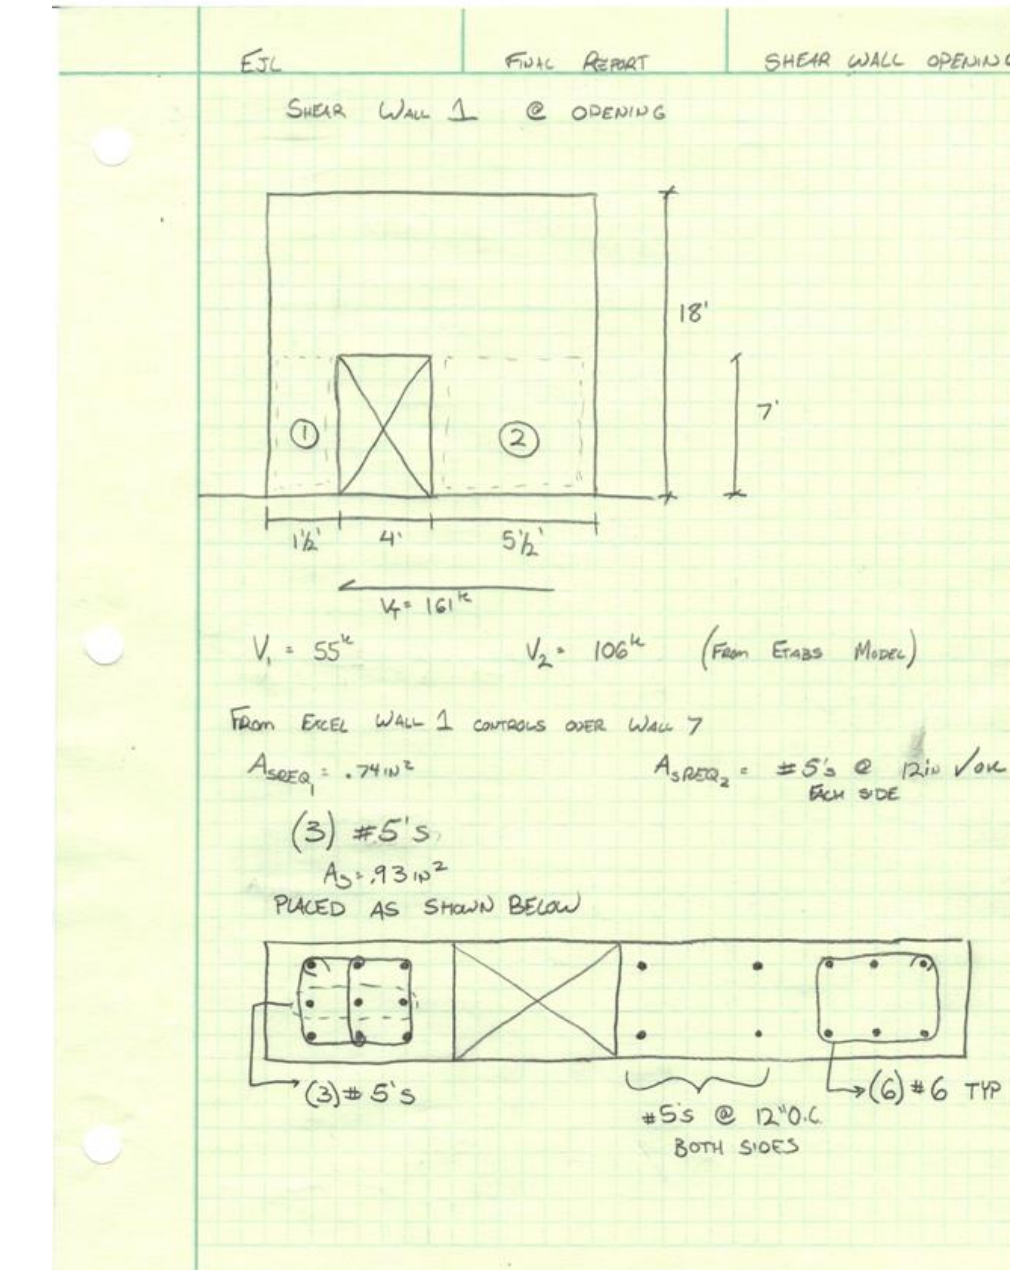 EJL FINAL REPORT SHEAR WALL OPENING
SHEAR WALL 1 @ OPENING
18'
7'
1 2
1½' 4' 5½'
V_T = 161ᵏ
V₁ = 55ᵏ V₂ = 106ᵏ (FROM ETABS MODEL)
FROM EXCEL WALL 1 CONTROLS OVER WALL 7
A_SREQ₁ = .74 IN² A_SREQ₂ = #5's @ 12in √ OK
EACH SIDE
(3) #5's
A_S = .93 IN²
PLACED AS SHOWN BELOW
(3) # 5's
(6) #6 TYP
#5's @ 12" O.C.
BOTH SIDES